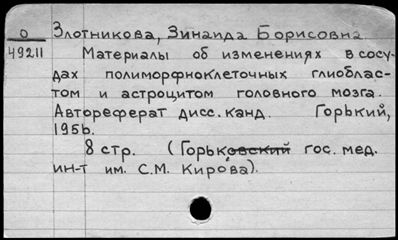 О Злотникова, Зинаида Борисовна
49211 Материалы об изменениях в сосу-
дах полиморфноклеточных глиоблас-
том и астроцитом головного мозга.
Автореферат дисс. канд. Горький,
1956.
8 стр. (Горьковский гос. мед.
ин-т им. С.М. Кирова).